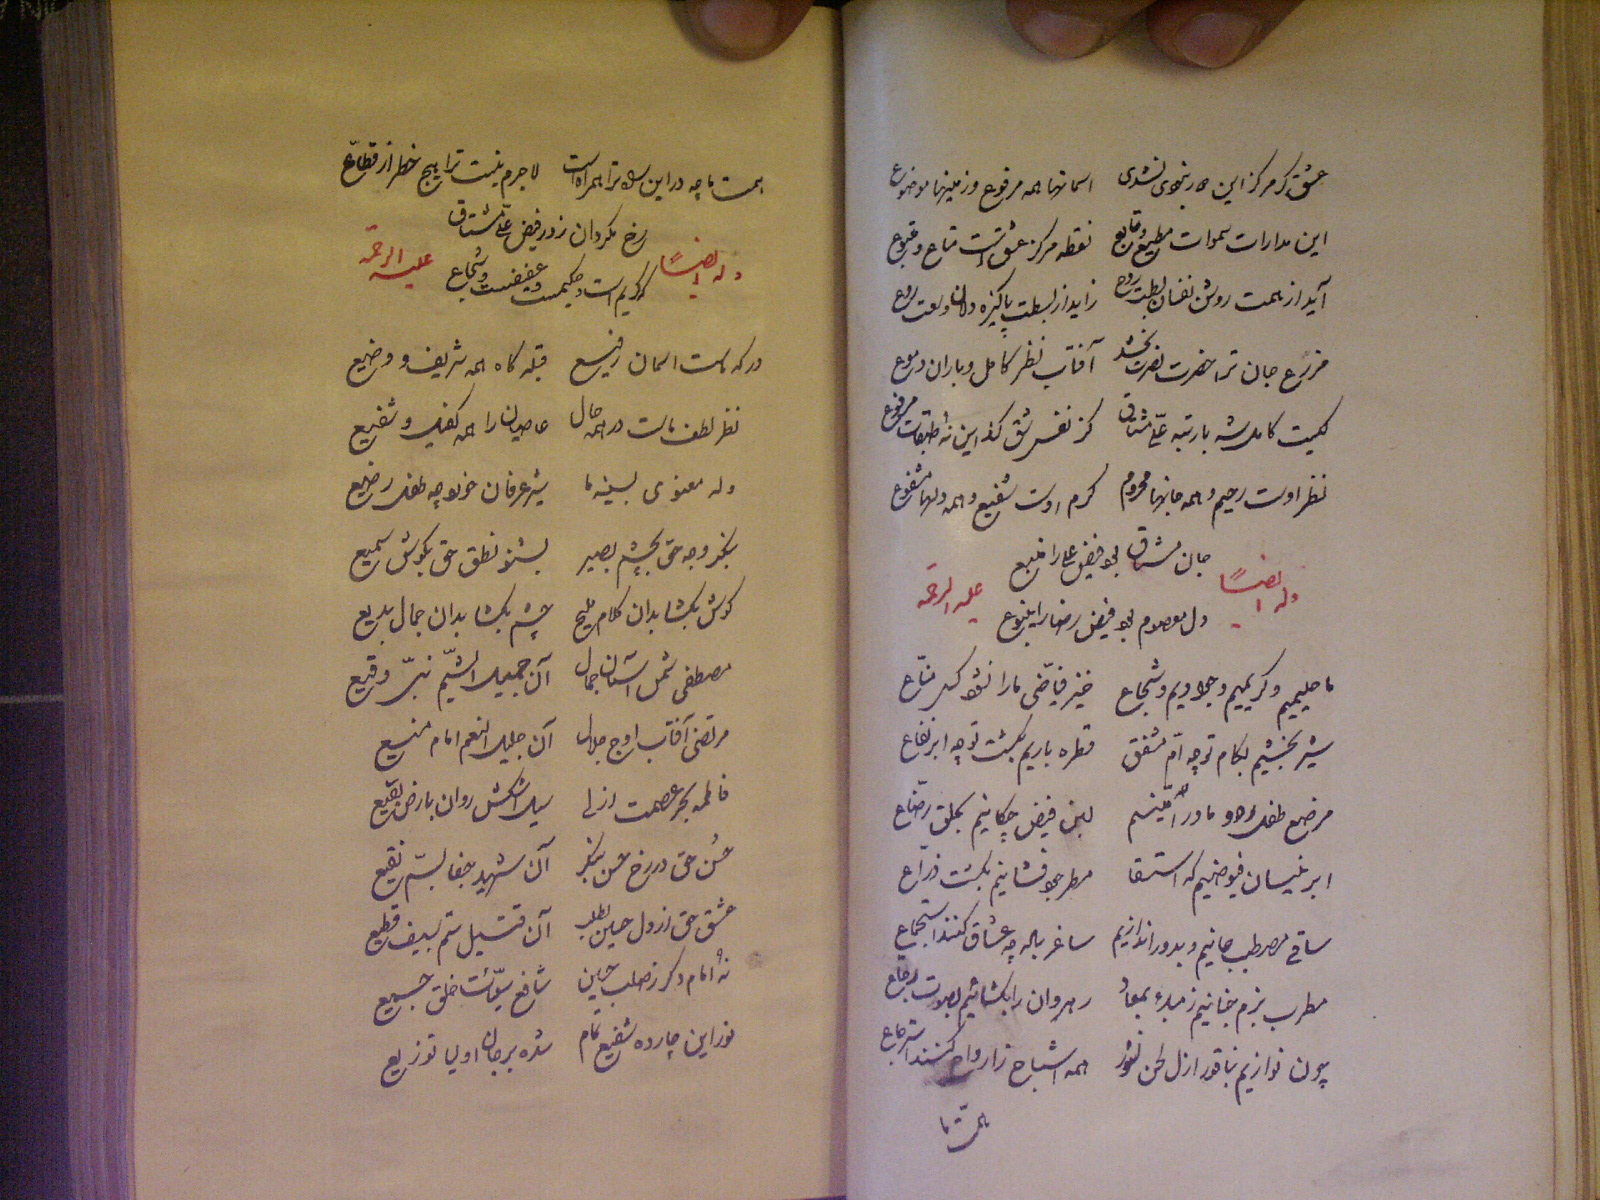 عشق کر مرکز این نه نشدی اسمانها همه مرفوع و زمینها موضوع
این مدارات سموات مطیع و تابع نقطه مرکز عشق است متاع و متبوع
آید از همت روشن نفسان زاید از پاکیزه دلان
مزرع جان ترا حضرت نصرت بخشد آفتاب نظر کامل و باران دموع
کیست کامل شه با رتبه علی مشتاق کز نفس شق کند این نه طبقات مرفوع
نظر اوست رحیم و همه جانها مرحوم کرم اوست شفیع و همه دلها مشفوع
وله ایضًا جان مشتاق بود فیض علی را منبع علیه الرحمه
دل معصوم بود فیض رضا را ینبوع
ما حلیمیم و کریمیم و جوادیم و شجاع خیر فیاضی ما را نشود کس منّاع
شیر بخشیم بکام تو چه امّ مشفق قطره باریم بکشت تو چه ابر نفاع
مرضع طفل دل و مادر لبن فیض چکانیم بحلق رضّاع
ابر نیسان فیوضیم که استسقا مطر جود فشانیم بکشت زرّاع
ساقی مصطب جانیم و بدور اندازیم ساغر باله چه عشاق کنند استجماع
مطرب بزم جنانیم ز مبدء بمعاد رهروان را بکشانیم بصوت رجاع
چون نوازیم بناقور ازل لحن نشور همه اشباح ز ارواح کنند استرجاع
همّت ما
همت ما چه در این راه ترا همراه است لا جرم نیست ترا هیچ خطر از قطاع
وله ایضًا رخ مکردان ز در فیض علی مشتاق علیه الرحمه
کو کریم است و حکیمست و عفیفست و شجاع
درکه ماست اسمان رفیع قبله کاه همه شریف و وضیع
نظر لطف ماست در همه حال عاصیان را همه کفیل و شفیع
وله معنوی بسینه ما شیر عرفان خورد چه طفل رضیع
بنکر وجه حق بچشم بصیر بشنو نطق حق بکوش سمیع
کوش بکشا بدان کلام ملیح چشم بکشا بدان جمال بدیع
مصطفی شمس آسمان جمال آن جمیل الشیّم نبیّ وقیع
مرتضی آفتاب اوج جلال آن جلیل النعم امام منیع
فاطمه بحر عصمت ازلی سیل اشکش روان بارض بقیع
حسن حق در رخ حسن بنکر آن شهید جفا بسمّ نقیع
عشق حق از دل حسین بطلب آن قتیل ستم بسیف قطیع
نه امام دکر ز صلب حسین شافع سیّئات خلق جمیع
نور این چارده شفیع تمام شده بر جان اولیا توزیع